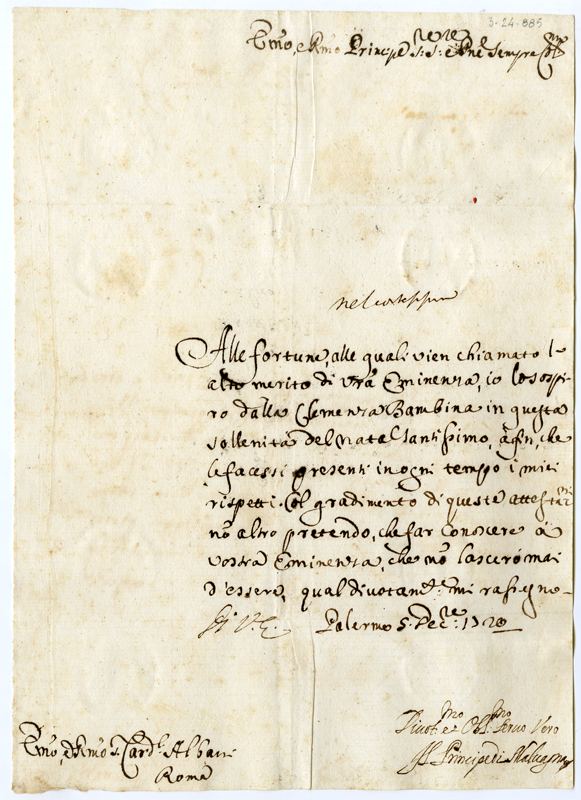 3-24-885
Emo, e Rmo Principe S:re S:re e Pne sempre Colmo
Alle fortune, alle quali vien chiamato l'
alto merito di Vra Eminenza, io lo sospi-
ro dalla Clemenza Bambina in questa
sollenità del natal santissimo, afin, che
le facessi presenti in ogni tempo i miei
rispetti. Col gradimento di queste attestni
nō altro pretendo, che far conoscere à
vostra Eminenza, che nō lascerò mai
d'essere, qual divotamte: mi rasegno-
Di V. E. Palermo 5. Dec:re 1720
Divotmo et Obmo Servo Vero
Il Principe di
Emo, e Rmo S. Cardl Albani
Roma